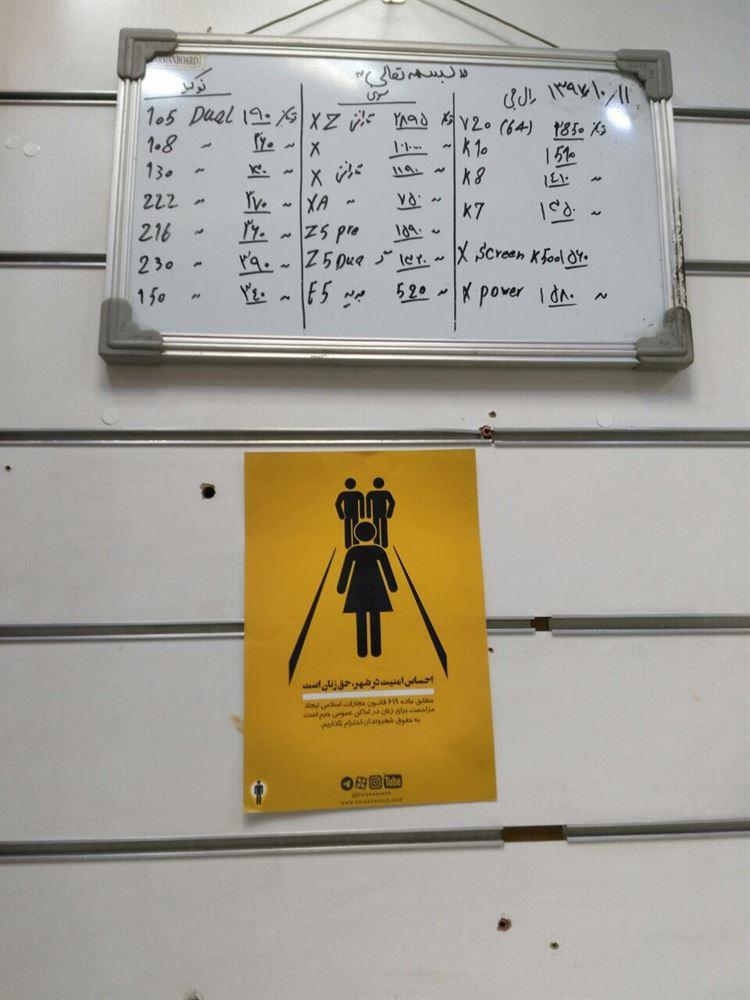 باسمه تعالی
۱۳۹۷/۱۰/۱۱
نوکیا
105 Dual ۱۹۰
108 " ۲۶۰ "
130 "
222 " ۲۷۰ "
216 " ۲۶۰ "
230 " ۲۹۰ "
150 " ۳۴۰ "
سونی
XZ ۲۸۹۵
X
X ۱۱۹۰ "
XA " ۷۵۰ "
Z5 pre ۱۵۹۰ "
Z5 Dual
E5 ۵۲۰ "
ال جی
V20 (64)
K10 ۱۵۹۰
K8 ۱۴۱۰ "
K7 ۱۳۵۰ "
X Screen K500
X power ۱۵۸۰ "
احساس امنیت در شهر، حق زنان است
مطابق ماده ۶۱۹ قانون مجازات اسلامی ایجاد
مزاحمت برای زنان در اماکن عمومی جرم است
به حقوق شهروندان احترام بگذاریم.
Tube
@harasswatch
www.harasswatch.com